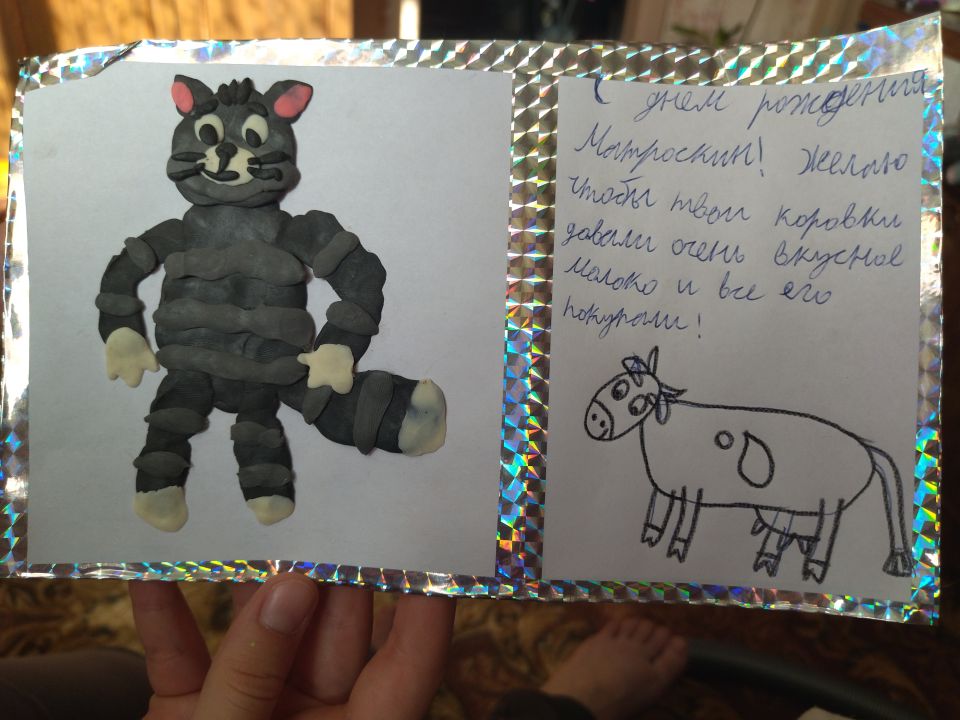 С днем рождения
Матроскин! Желаю
чтобы твои коровки
давали очень вкусное
молоко и все его
покупали!